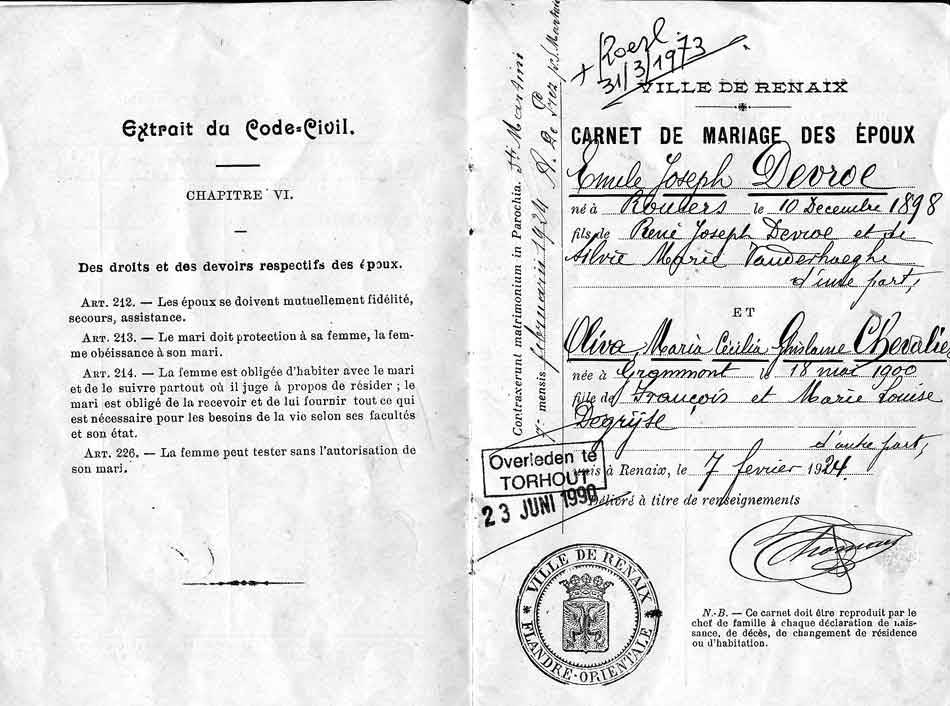 Extrait du Code-Civil.
CHAPITRE VI.
Des droits et des devoirs respectifs des époux.
ART. 212. — Les époux se doivent mutuellement fidélité,
secours, assistance.
ART. 213. — Le mari doit protection à sa femme, la fem-
me obéissance à son mari.
ART. 214. — La femme est obligée d'habiter avec le mari
et de le suivre partout où il juge à propos de résider ; le
mari est obligé de la recevoir et de lui fournir tout ce qui
est nécessaire pour les besoins de la vie selon ses facultés
et son état.
ART. 226. — La femme peut tester sans l'autorisation de
son mari.
Contraxerunt matrimonium in Parochia. Sti Martini
7a mensis februarii 1924
+
31/3/1973
VILLE DE RENAIX
CARNET DE MARIAGE DES ÉPOUX
Emile Joseph Devroe
né à Roulers le 10 Decembre 1898
fils de René Joseph Devroe et de
Silvie Marie Vanderhaeghe
d'une part,
ET
Oliva Maria Cécilia Ghislaine Chevalier
née à Grammont le 18 mai 1900
fille de François et Marie Louise
Degrijse
d'autre part,
unis à Renaix, le 7 fevrier 1924.
Overleden te
TORHOUT
23 JUNI 1990
Délivré à titre de renseignements
VILLE DE RENAIX
FLANDRE-ORIENTALE
N.-B. — Ce carnet doit être reproduit par le
chef de famille à chaque déclaration de nais-
sance, de décès, de changement de résidence
ou d'habitation.